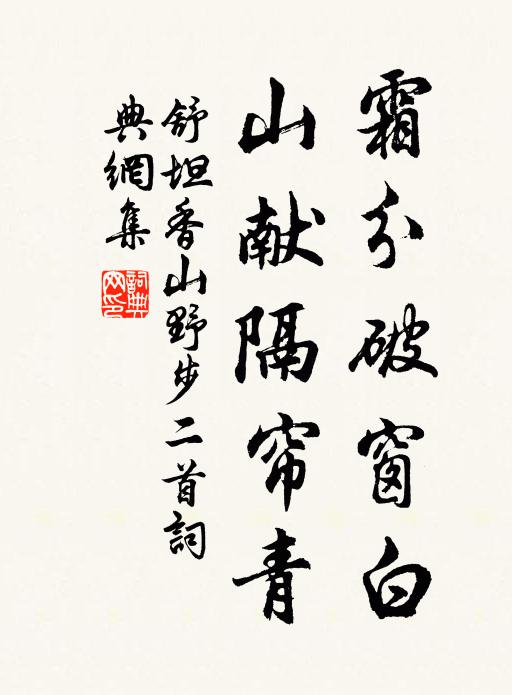 霜分破窗白
山献隔帘青
舒坦香山野步二首詞
典網集
詞典网印